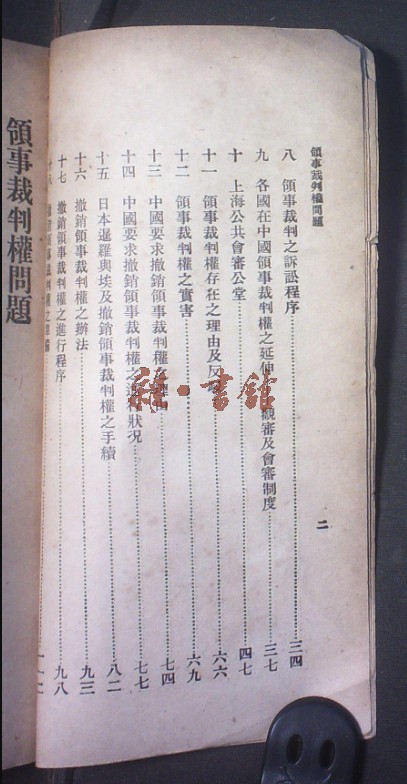 領事裁判權問題
二
八 領事裁判之訴訟程序……三四
九 各國在中國領事裁判權之延伸 觀審及會審制度……三七
十 上海公共會審公堂……四七
十一 領事裁判權存在之理由及反……六六
十二 領事裁判權之實害……六九
十三 中國要求撤銷領事裁判權之理由……七四
十四 中國要求撤銷領事裁判權之進行狀況……七七
十五 日本暹羅與埃及撤銷領事裁判權之手續……八二
十六 撤銷領事裁判權之辦法……九三
十七 撤銷領事裁判權之進行程序……九八
十八 領事裁判權之
領事裁判權問題
雜·書館